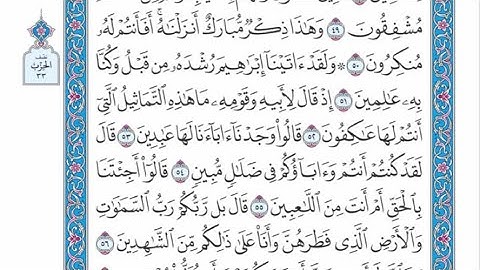 مُّشْفِقُونَ ٤٩ وَهَٰذَا ذِكْرٌ مُّبَارَكٌ أَنزَلْنَٰهُ ۚ أَفَأَنتُمْ لَهُۥ
نصف الحزب ٣٣
مُنكِرُونَ ٥٠ ۞ وَلَقَدْ ءَاتَيْنَآ إِبْرَٰهِيمَ رُشْدَهُۥ مِن قَبْلُ وَكُنَّا
بِهِۦ عَٰلِمِينَ ٥١ إِذْ قَالَ لِأَبِيهِ وَقَوْمِهِۦ مَا هَٰذِهِ ٱلتَّمَاثِيلُ ٱلَّتِىٓ
أَنتُمْ لَهَا عَٰكِفُونَ ٥٢ قَالُوا۟ وَجَدْنَآ ءَابَآءَنَا لَهَا عَٰبِدِينَ ٥٣ قَالَ
لَقَدْ كُنتُمْ أَنتُمْ وَءَابَآؤُكُمْ فِى ضَلَٰلٍ مُّبِينٍ ٥٤ قَالُوٓا۟ أَجِئْتَنَا
بِٱلْحَقِّ أَمْ أَنتَ مِنَ ٱللَّٰعِبِينَ ٥٥ قَالَ بَل رَّبُّكُمْ رَبُّ ٱلسَّمَٰوَٰتِ
وَٱلْأَرْضِ ٱلَّذِى فَطَرَهُنَّ وَأَنَا۠ عَلَىٰ ذَٰلِكُم مِّنَ ٱلشَّٰهِدِينَ ٥٦